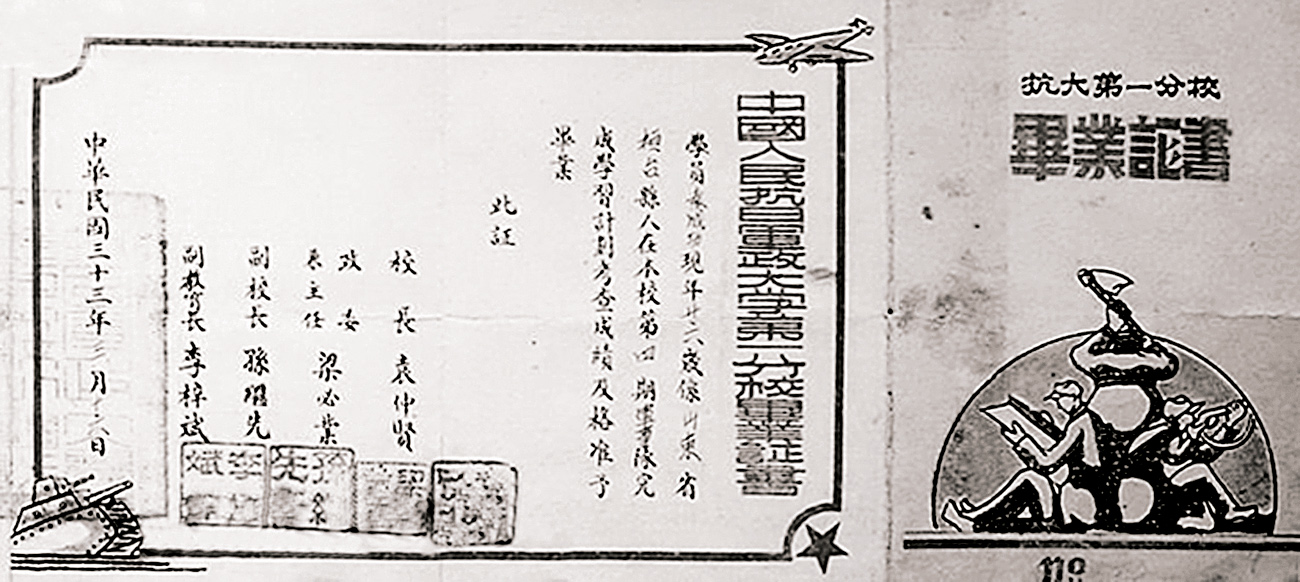 抗大第一分校
畢業証書
中國人民抗日軍政大学第一分校畢業証書
學員 現年廿六歲係山東省
桓台縣人在本校第四期軍事隊完
成學習計劃考查成績及格准予
畢業
此証
校長 袁仲賢
政委
系主任 梁必業
副校長 孫繼先
副教育長 李梓斌
中華民國三十三年二月十六日
李梓斌